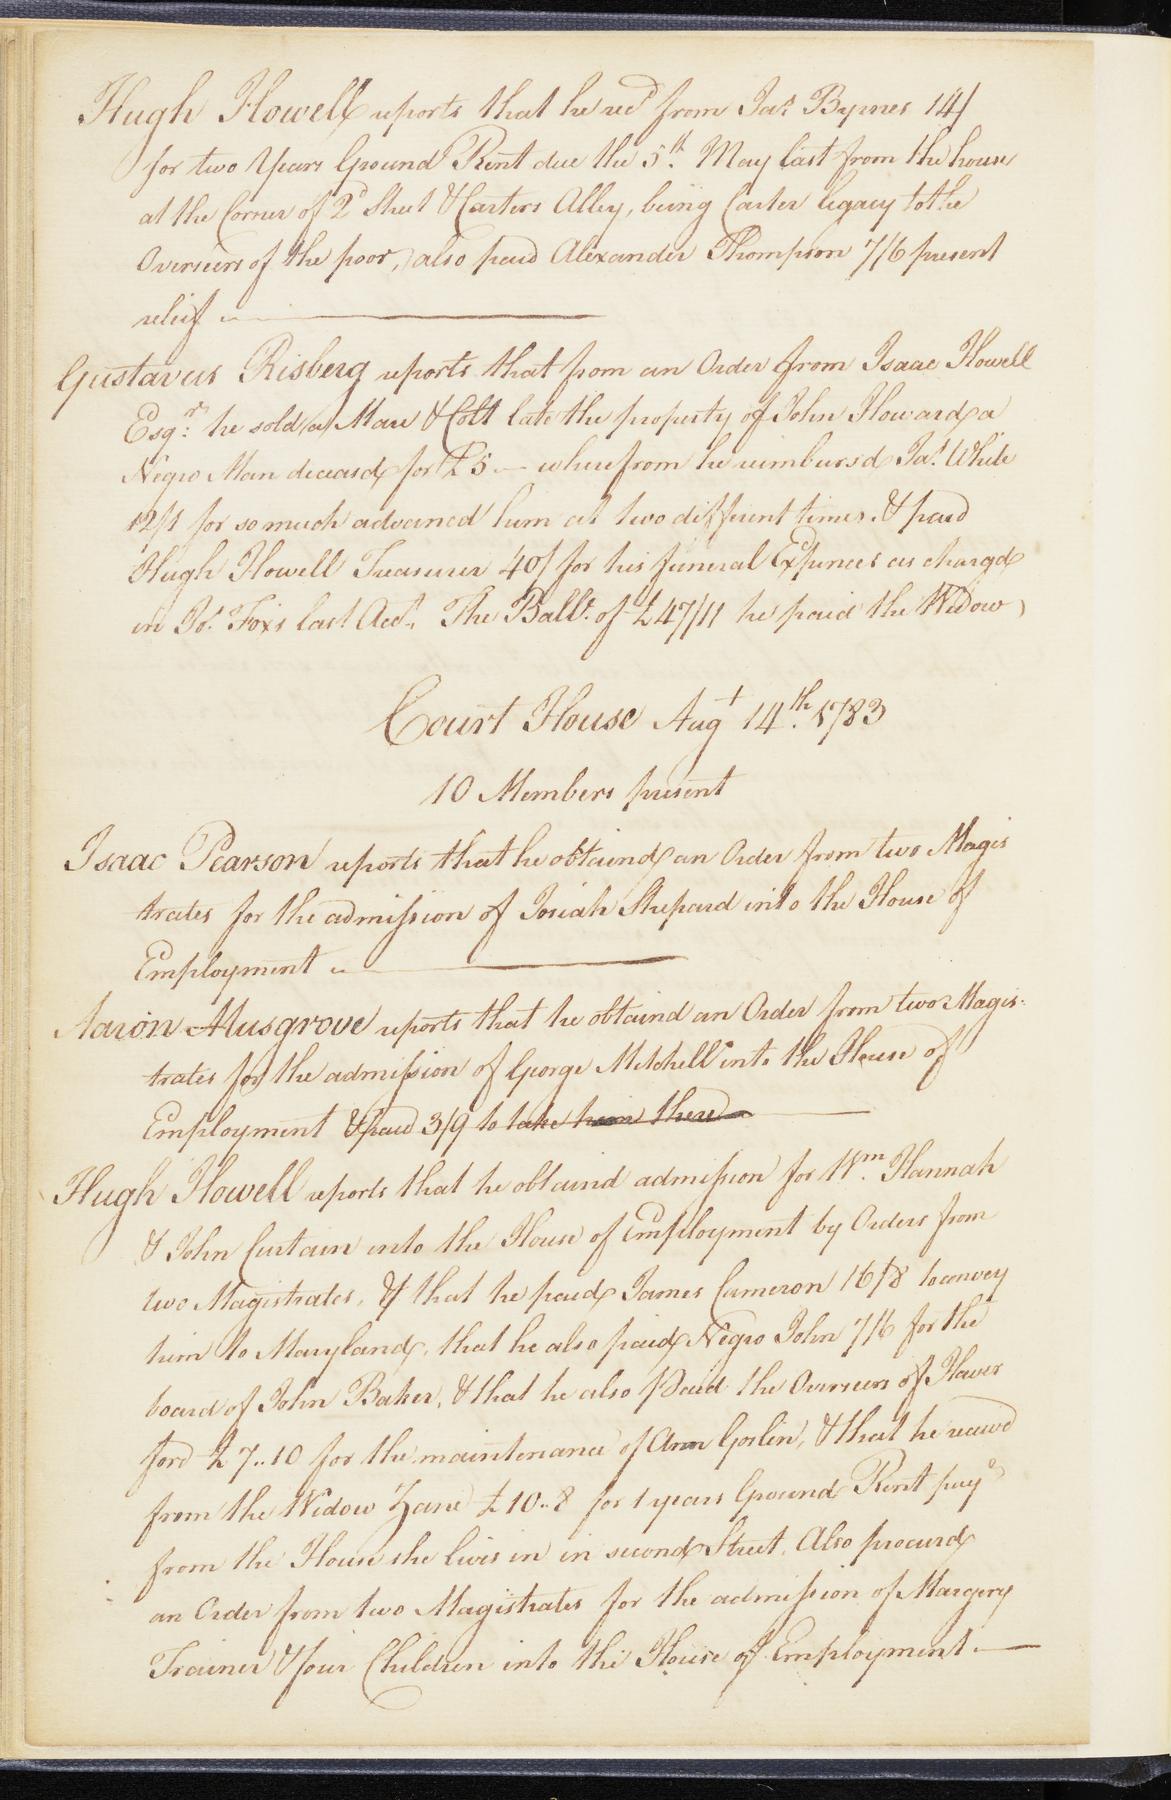 Hugh Howell reports that he recd from Jas. Byrnes 14/
for two Years Ground Rent due the 5th. May last from the house
at the Corner of 2d Street & Carters Alley, being Carter legacy to the
Overseers of the poor, also paid Alexander Thompson 7/6 present
relief
Gustavus Risberg reports that from an Order from Isaac Howell
Esqr. he sold a Mare & Colt late the property of John Howard a
Negro Man deceasd for £5 — wherefrom he reimbursd Jas. White
12/1 for so much advanced him at two different times. & paid
Hugh Howell Treasurer 40/ for his funeral Expences as chargd
in Jos. Foxs last Acct. The Ballc. of £47/11 he paid the Widow
Court House Augt 14th. 1783
10 Members present
Isaac Pearson reports that he obtaind an Order from two Magis
trates for the admission of Josiah Shepard into the House of
Employment
Aaron Musgrove reports that he obtaind an Order from two Magis-
trates for the admission of George Mitchell into the House of
Employment & paid 3/9 to take him there
Hugh Howell reports that he obtaind admission for Wm. Hannah
& John Curtain into the House of Employment by Orders from
two Magistrates, & that he paid James Cameron 16/8 to convey
him to Maryland, that he also paid Negro John 7/6 for the
board of John Baker, & that he also Paid the Overseers of Haver
ford £7..10 for the maintenance of Ann Goslin, & that he receivd
from the Widow Zane £10..8 for 1 years Ground Rent pay
from the House she lives in in second Street. Also procurd
an Order from two Magistrates for the admission of Margery
Trainer & four Children into the House of Employment —